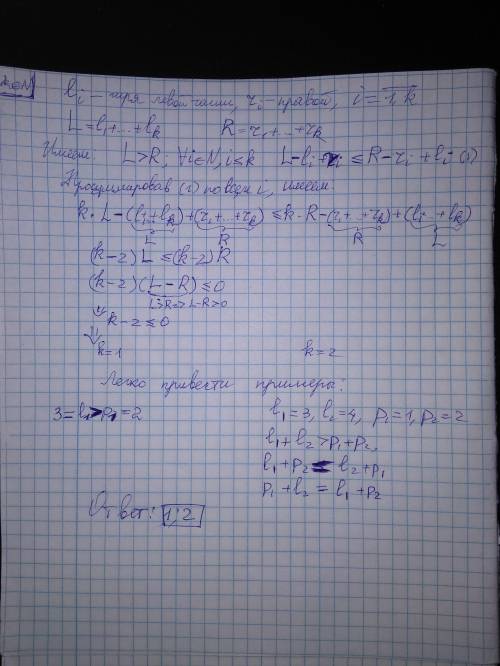 k∈N
lᵢ – гиря левой чаши, rᵢ – правой, i = 1, k
L = l₁+...+lₖ R = r₁+...+rₖ
Имеем: L>R; ∀i∈N, i≤k L-lᵢ+rᵢ ≤ R-rᵢ+lᵢ (1)
Просуммировав (1) по всем i, имеем:
k·L-(l₁+...+lₖ)+(r₁+...+rₖ) ≤ k·R-(r₁+...+rₖ)+(l₁+...+lₖ)
L R R L
(k-2)L ≤ (k-2)R
(k-2)(L-R) ≤ 0
L>R => L-R>0
⇓ k-2 ≤ 0
⇓ k=1 k=2
Легко привести примеры:
3=l₁>p₁=2 l₁=3, l₂=4, p₁=1, p₂=2
l₁+l₂ > p₁+p₂,
l₁+p₂ = l₂+p₁
p₁+l₂ = l₁+p₂
Ответ: 1; 2